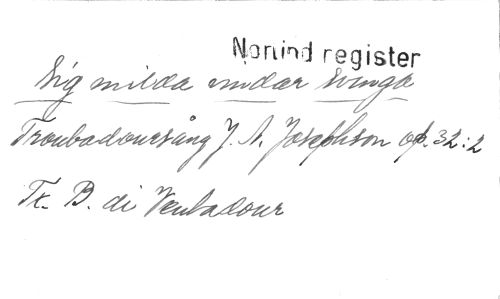 Nordind register
Sig milda vindar svinga
Troubadoursång J. A. Josephson op. 32:2
Tx. B. di Ventadour